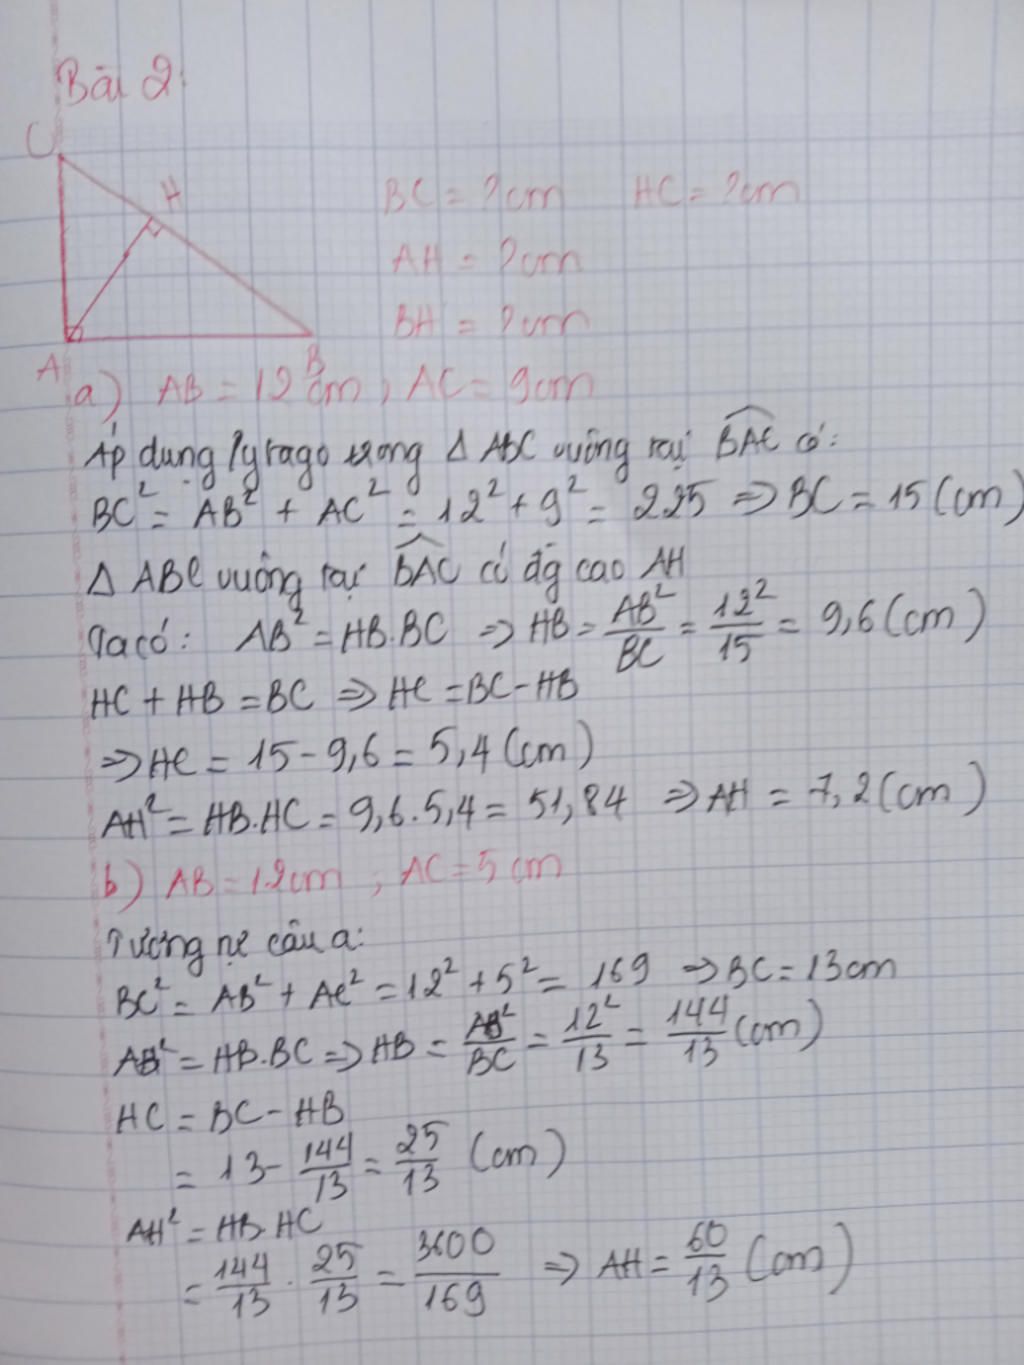 Bài 2:
C
H
A
B
BC = ? cm HC = ? cm
AH = ? cm
BH = ? cm
a) AB = 12 cm, AC = 9cm
Áp dụng Pytago trong Δ ABC vuông tại \widehat{BAC} có:
BC² = AB² + AC² = 12² + 9² = 225 => BC = 15 (cm)
Δ ABC vuông tại \widehat{BAC} có đg cao AH
Ta có: AB² = HB.BC => HB = AB²/BC = 12²/15 = 9,6 (cm)
HC + HB = BC => HC = BC - HB
=> HC = 15 - 9,6 = 5,4 (cm)
AH² = HB.HC = 9,6.5,4 = 51,84 => AH = 7,2 (cm)
b) AB = 12cm, AC = 5 cm
Tương tự câu a:
BC² = AB² + AC² = 12² + 5² = 169 => BC = 13cm
AB² = HB.BC => HB = AB²/BC = 12²/13 = 144/13 (cm)
HC = BC - HB
= 13 - 144/13 = 25/13 (cm)
AH² = HB.HC
= 144/13 . 25/13 = 3600/169 => AH = 60/13 (cm)